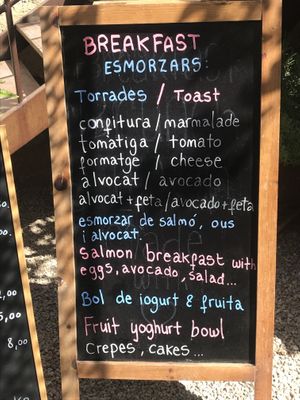 BREAKFAST
ESMORZARS:
Torrades / Toast
confitura / marmalade
tomatiga / tomato
formatge / cheese
alvocat / avocado
alvocat + feta / avocado + feta
esmorzar de salmó, ous
i alvocat.
Salmon breakfast with
eggs, avocado, salad...
Bol de iogurt & fruita
Fruit yoghurt bowl
Crepes, cakes...
,00
5,00
8,00